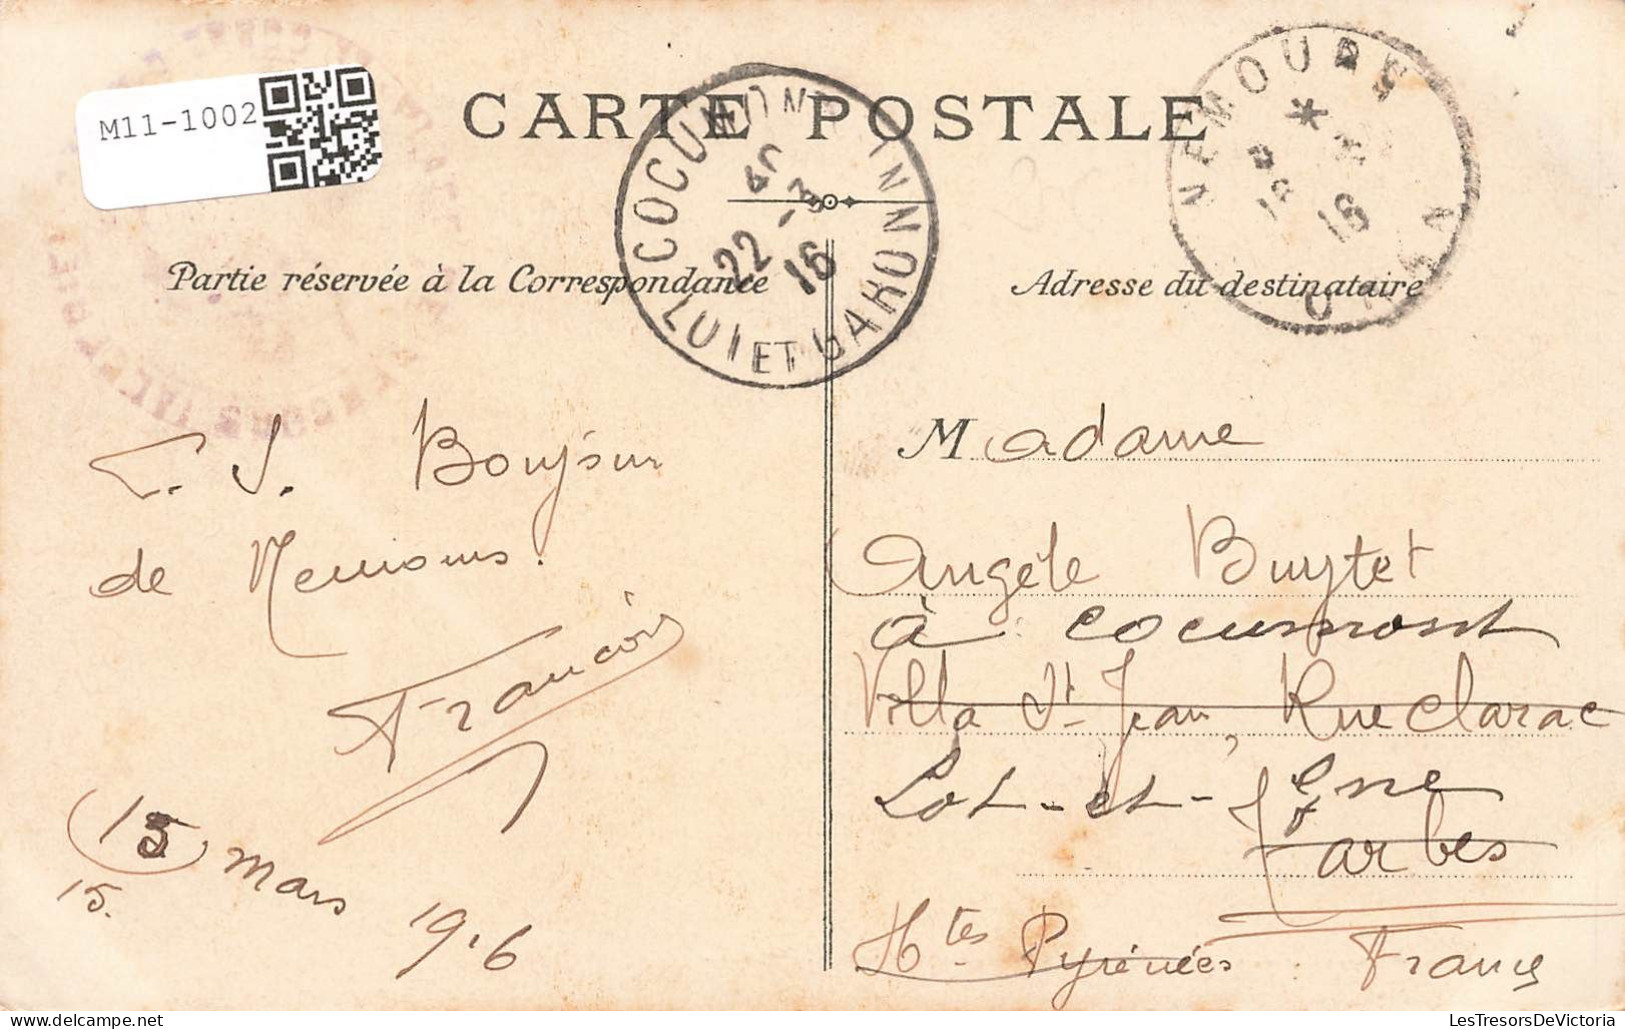 M11-1002
CARTE POSTALE
COCUMONT
LOT ET GARONNE
22 -3
16
NEMOURS
ORAN
16
Partie réservée à la Correspondance
Adresse du destinataire
T. S. Bonjour
de Nemours.
François
15 Mars 1916
15.
Madame
Angèle Buytet
à Cocumont
Villa St Jean, Rue Clarac
Lot-et-Gne
Tarbes
Htes Pyrénées France
LesTresorsDeVictoria
www.delcampe.net